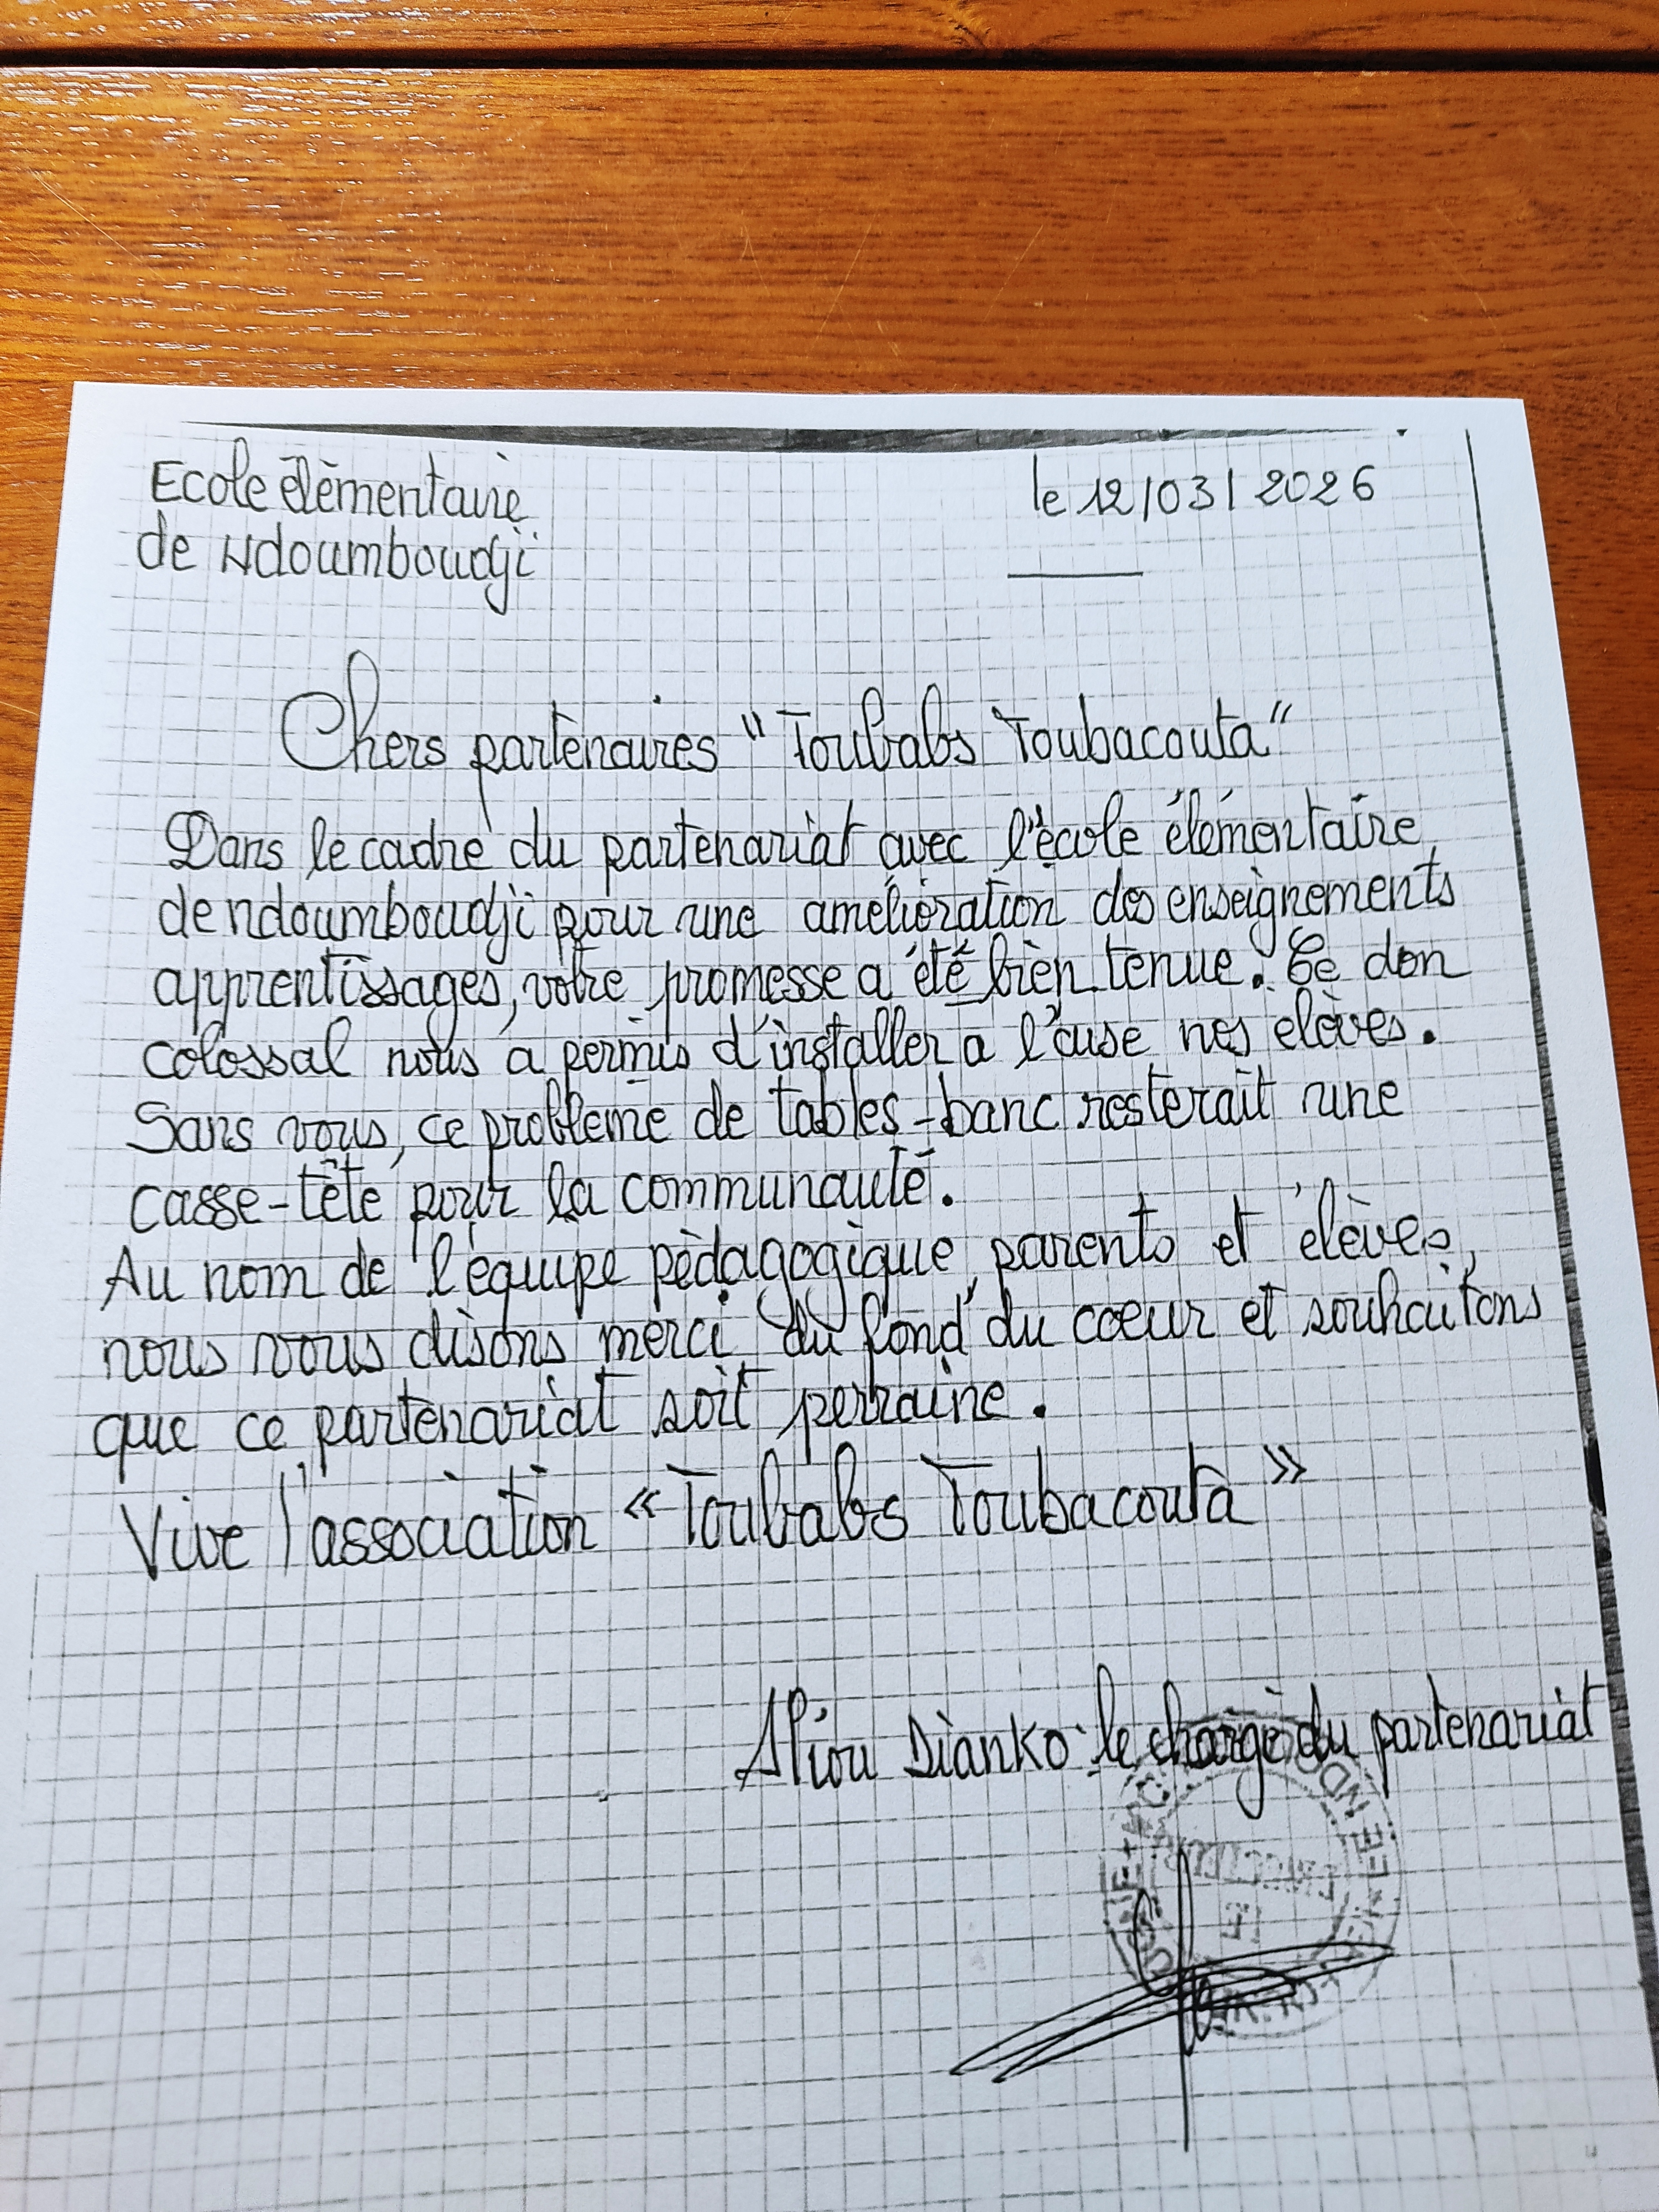 Ecole élèmentaire
le 12/03/2026
de Ndoumboudji
Chers partenaires "Toubabs Toubacouta"
Dans le cadre du partenariat avec l'école élémentaire
de ndoumboudji pour une amélioration des enseignements
apprentissages, votre promesse a été bien tenue. Ce don
colossal nous a permis d'installer a l'aise nos elèves.
Sans vous, ce problème de tables-banc resterait une
casse-tête pour la communauté.
Au nom de l'équipe pèdagogique, parents et élèves,
nous vous disons merci du fond du coeur et souhaitons
que ce partenariat soit perraine.
Vive l'association « Toubabs Toubacouta »
Aliou Dianko le chargè du partenariat